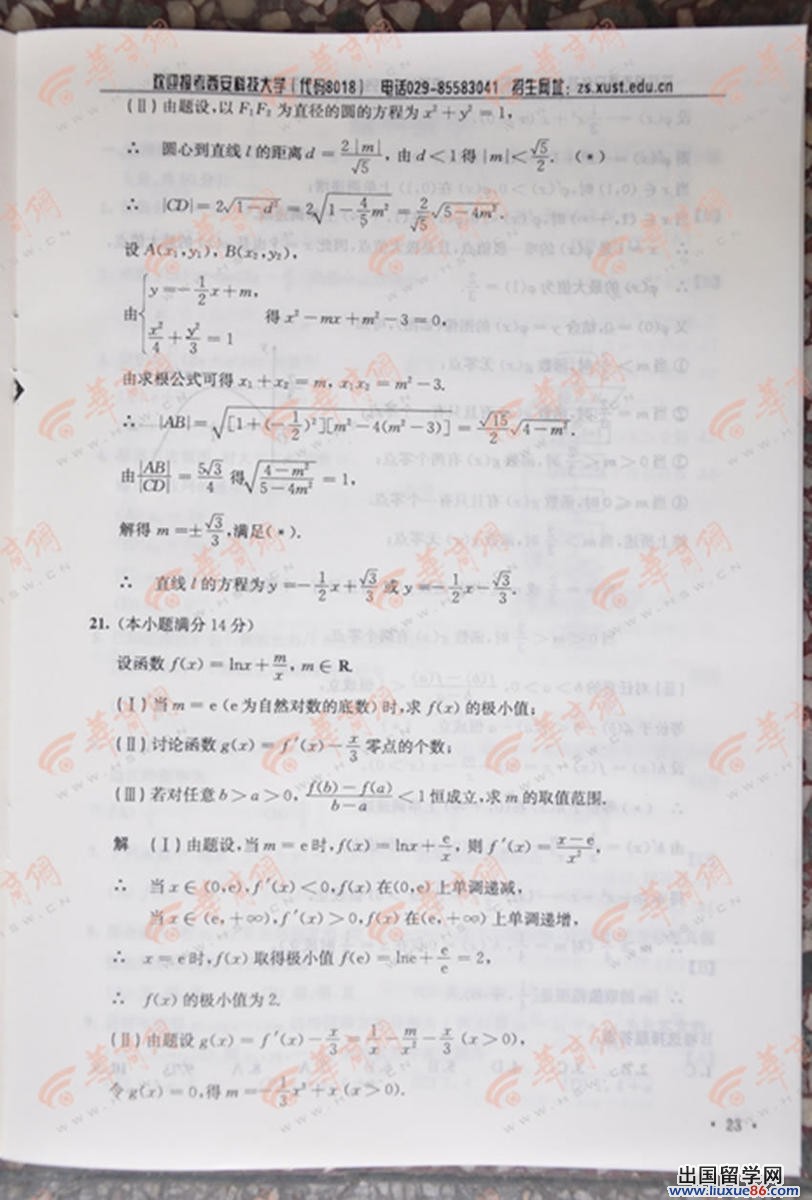 欢迎报考西安科技大学(代码8018) 电话029-85583041 招生网址:zs.xust.edu.cn
(Ⅱ)由题设,以F₁F₂为直径的圆的方程为x²+y²=1,
∴ 圆心到直线l的距离d=2|m|/√5,由d<1得|m|<√5/2.(*)
∴ |CD|=2√(1-d²)=2√(1-4/5m²)=2/√5√(5-4m²).
设A(x₁,y₁),B(x₂,y₂),
由{y=-1/2x+m,
x²/4+y²/3=1 得x²-mx+m²-3=0,
由求根公式可得x₁+x₂=m,x₁x₂=m²-3.
∴ |AB|=√([1+(-1/2)²][m²-4(m²-3)])=√15/2√(4-m²).
由|AB|/|CD|=5√3/4得√((4-m²)/(5-4m²))=1,
解得m=±√3/3,满足(*).
∴ 直线l的方程为y=-1/2x+√3/3或y=-1/2x-√3/3.
21.(本小题满分14分)
设函数f(x)=lnx+m/x,m∈R.
(Ⅰ)当m=e(e为自然对数的底数)时,求f(x)的极小值;
(Ⅱ)讨论函数g(x)=f′(x)-x/3零点的个数;
(Ⅲ)若对任意b>a>0,(f(b)-f(a))/(b-a)<1恒成立,求m的取值范围.
解 (Ⅰ)由题设,当m=e时,f(x)=lnx+e/x,则f′(x)=(x-e)/x²,
∴ 当x∈(0,e),f′(x)<0,f(x)在(0,e)上单调递减,
当x∈(e,+∞),f′(x)>0,f(x)在(e,+∞)上单调递增,
∴ x=e时,f(x)取得极小值f(e)=lne+e/e=2,
∴ f(x)的极小值为2.
(Ⅱ)由题设g(x)=f′(x)-x/3=1/x-m/x²-x/3(x>0),
令g(x)=0,得m=-1/3x³+x(x>0).
· 23 ·
出国留学网
www.liuxue86.com